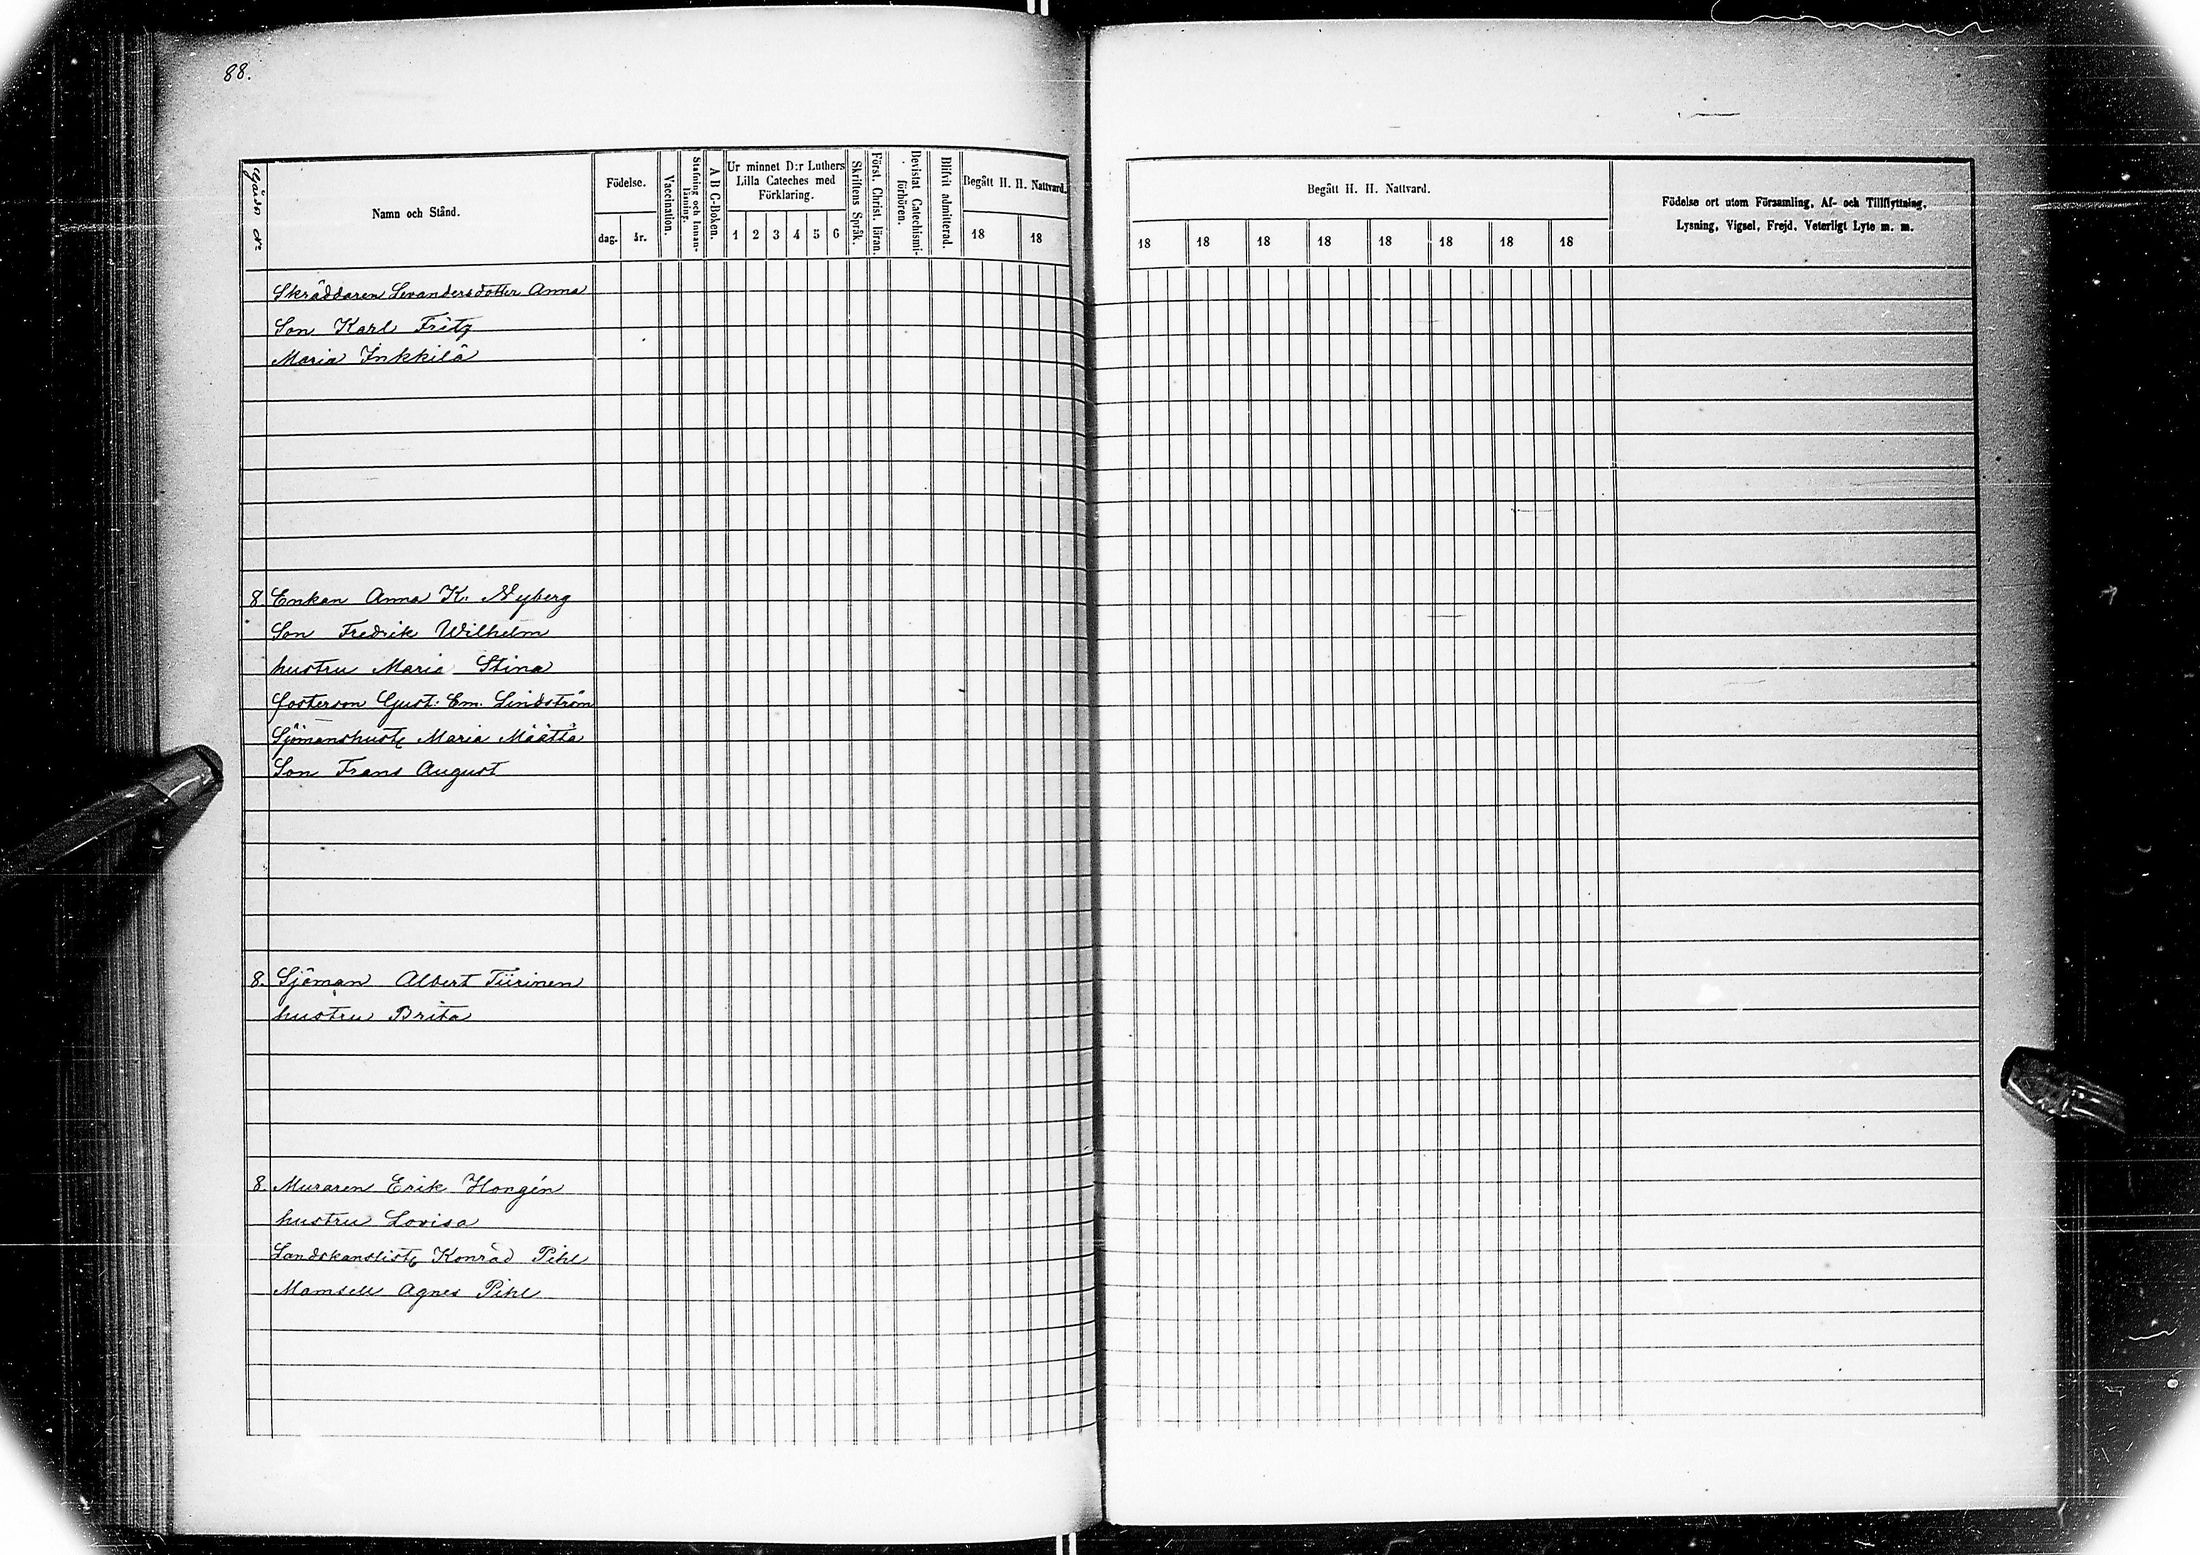 88.
Gårds No
Namn och Stånd.
Födelse.
dag.
år.
Vaccination.
Stafning och Innan-
läsning.
A B C-Boken.
Ur minnet D:r Luthers
Lilla Cateches med
Förklaring.
1 2 3 4 5 6
Skriftens Språk.
Först. Christ. läran.
Bevistat Catechismi-
förhören.
Blifvit admitterad.
Begått H. H. Nattvard.
18 18
Begått H. H. Nattvard.
18 18 18 18 18 18 18 18
Födelse ort utom Församling, Af- och Tillflyttning,
Lysning, Vigsel, Frejd, Veterligt Lyte m. m.
Skräddaren Levandersdotter Anna
Son Karl Fritz
Maria Inkkilä
8. Enkan Anna K. Nyberg
Son Fredrik Wilhelm
hustru Maria Stina
fosterson Gust: Em. Lindström
Sjömanshust Maria Määttä
Son Frans August
8. Sjöman Albert Tiirinen
hustru Brita
8. Muraren Erik Hongén
hustru Lovisa
Landskanslist Konrad Pihl
Mamsell Agnes Pihl